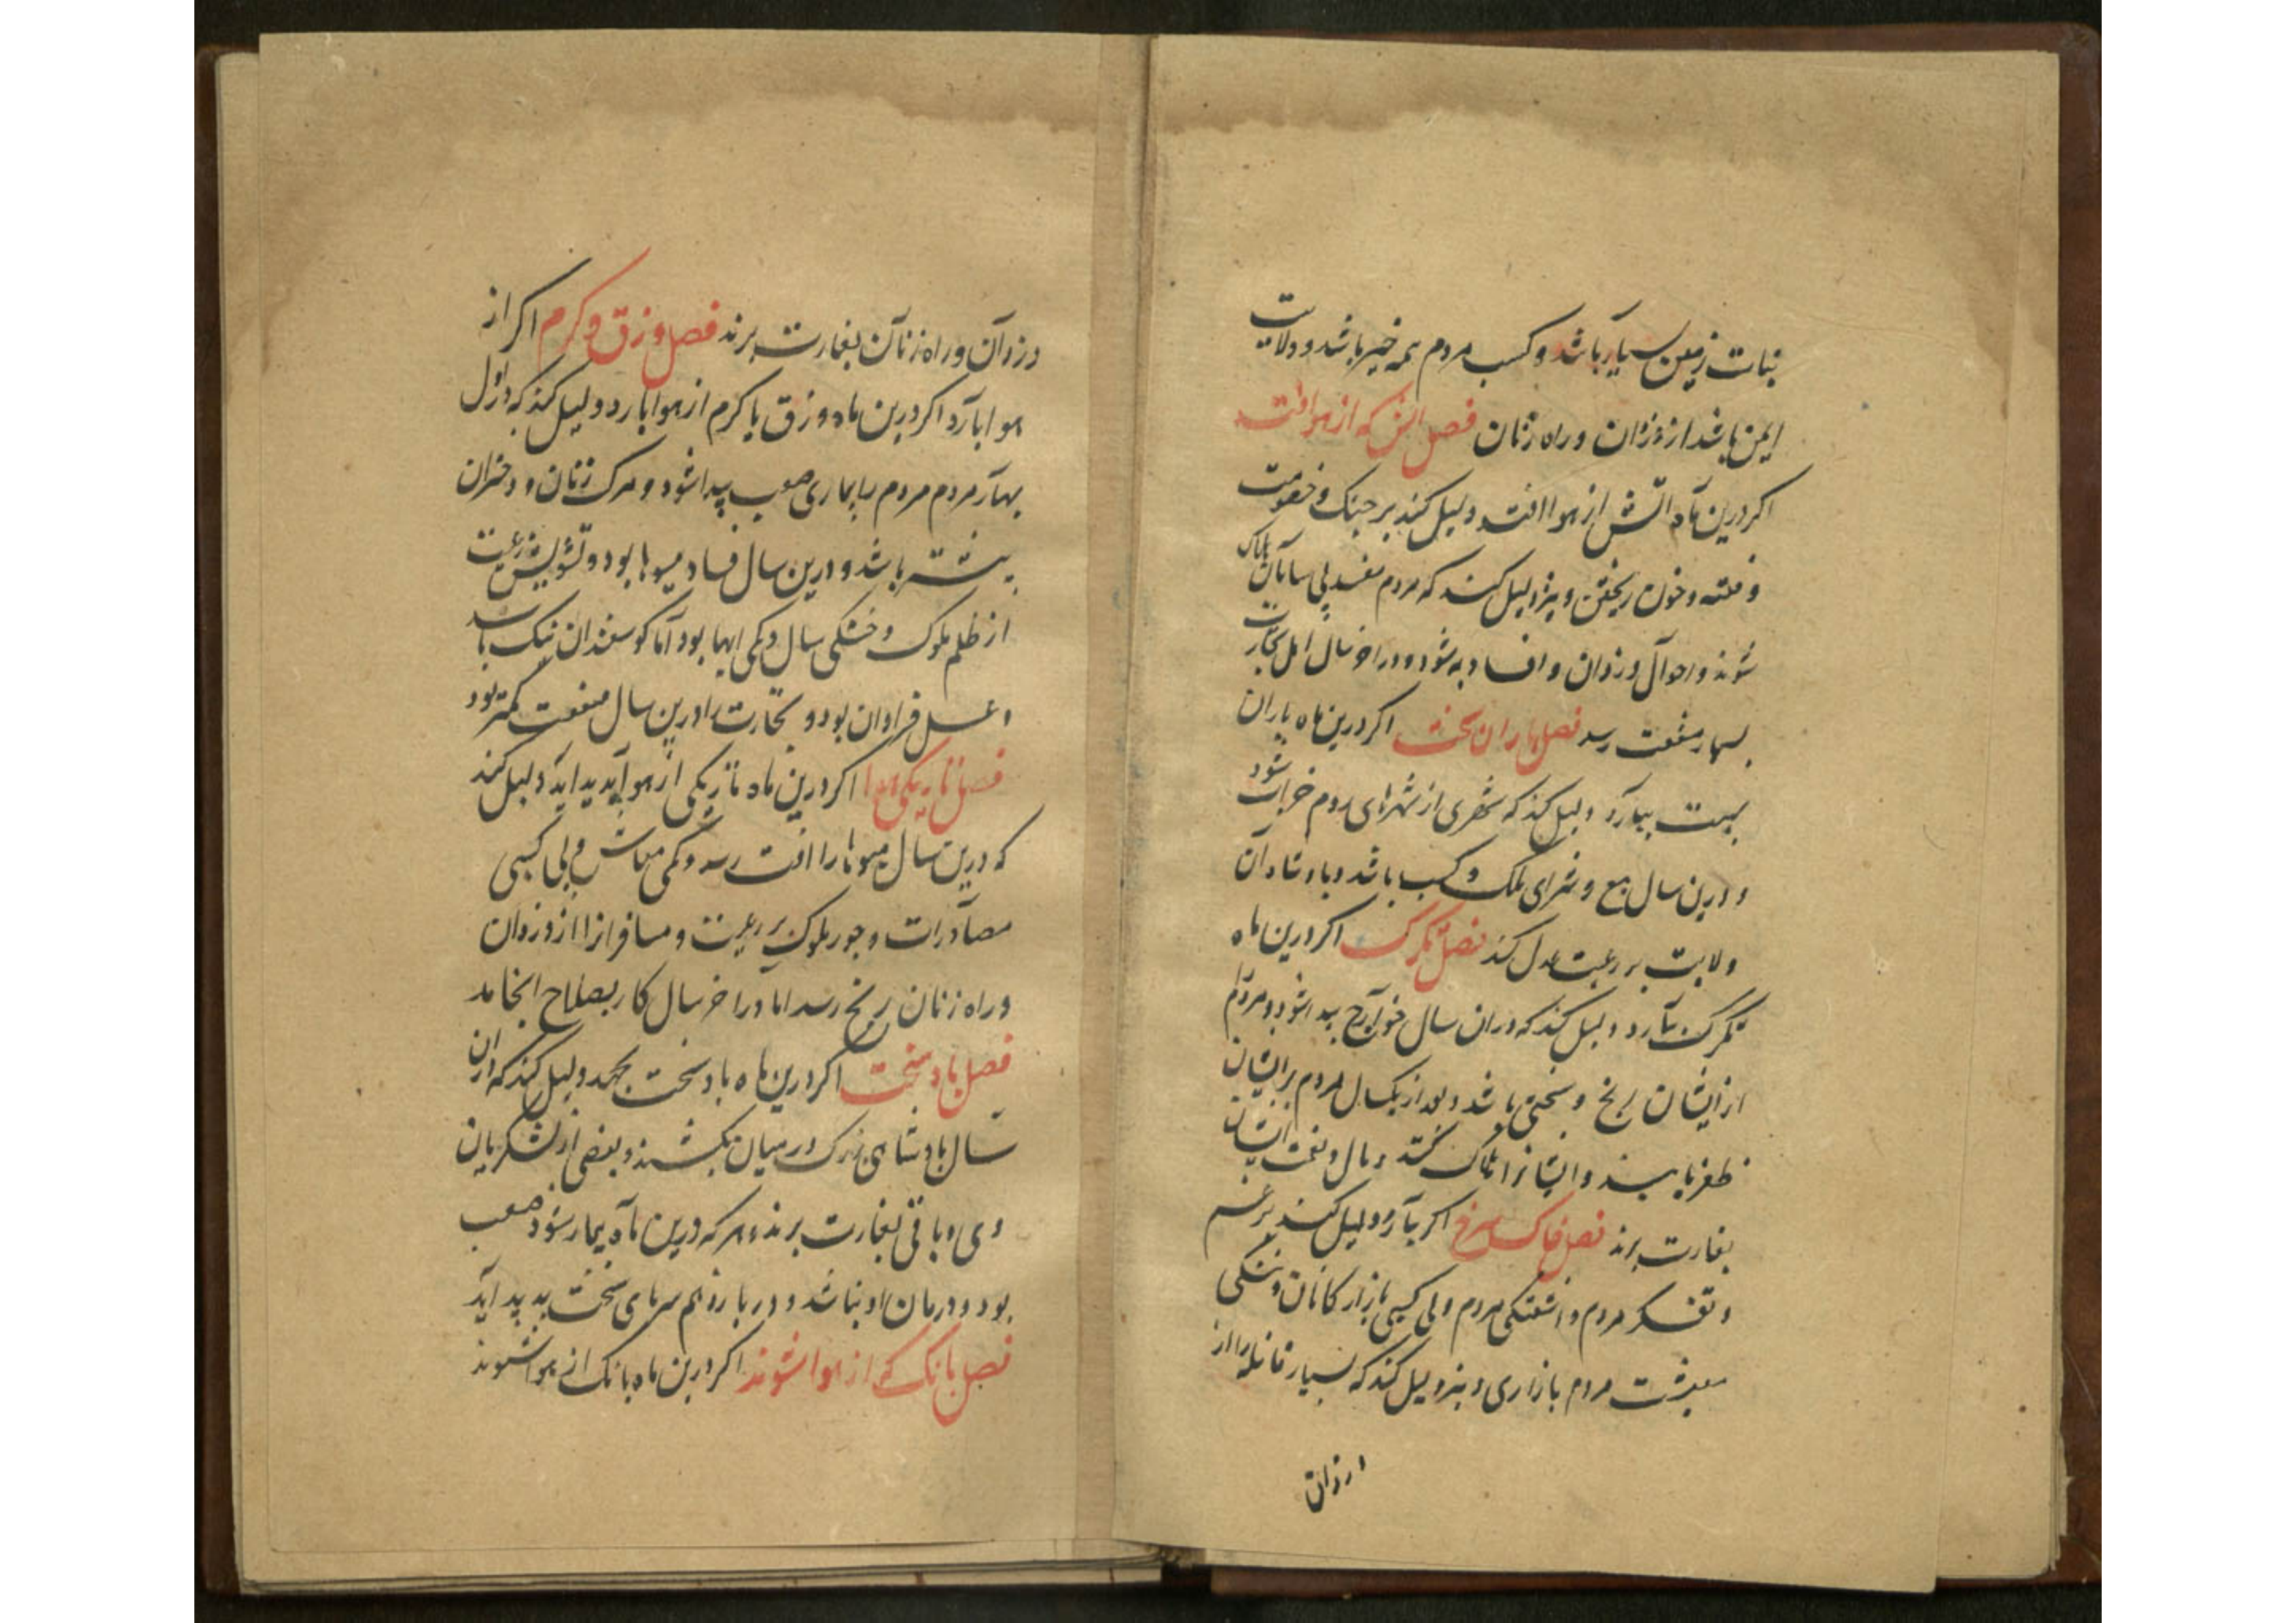 نبات زمین بسیار باشد و کسب مردم همه خیر باشد و ولایت
ایمن باشد از دزدان و راه زنان فصل اتش که از هوا افتد
اکر درین ماه اتش از هوا افتد دلیل کند بر جنک و خصومت
و فتنه و خون ریختن و نیز دلیل کند که مردم مفسد بی سامان هلاک
شوند و احوال دزدان و افساد به شود و در اخر سال اهل تجارت
بسیار منفعت رسد فصل باران سخت اکر درین ماه باران
سخت ببارد دلیل کند که شهری از شهرهای روم خراب شود
و درین سال بیع و شرای ملک و کسب باشد و پادشاه آن
ولایت بر رعیت عدل کند فصل تکرک اکر درین ماه
تکرک بآرد دلیل کند که در ان سال خوآرج پیدا شود و مردم
از ایشان رنج و سختی باشد و بعد از یکسال مردم بر ایشان
ظفر یابند و ایشانرا هلاک کنند و مال و نعمت ایشان
بغارت برند فصل خاک سرخ اکر بآرد دلیل کند بر غم
و تفکر مردم و اشفتکی مردم و بی کسبی بازارکانان و تنکی
معیشت مردم بازاری و نیز دلیل کند که بسیار قافله را از
دزدان و راه زنان بغارت برند فصل وزق و کرم اکر از
هوا بآرد اکر درین ماه وزق یا کرم از هوا بارد دلیل کند که در اول
بهآر مردم مردم را بیماری صعب پیدا شود و مرک زنان و دختران
بیشتر باشد و درین سال فساد میوها بود و تشویش رعیت
از ظلم ملوک و خشکی سال و کمی ابها بود اما کوسفندان نیک باشد
و عسل فراوان بود و تجارت را درین سال منفعت کمتر بود
فصل تاریکی هوا اکر درین ماه تاریکی از هوا پدید اید دلیل کند
که درین سال میوها را افت رسد و کمی معاش و بی کسبی
مصآدرات و جور ملوک بر رعیت و مسافرانرا از دزدان
و راه زنان رنج رسد اما در اخر سال کار بصلاح انجامد
فصل باد سخت اکر درین ماه باد سخت بجهد دلیل کند که در ان
سال پادشاهی بزرک در میان بکشند و بعضی از لشکریان
وی و باقی بغارت برند و هر که درین ماه بیمار شود صعب
بود و درمان او نباشد و در باره نهم سرمای سخت به پدید آید
فصل بانک که از هوا شنوند اکر درین ماه بانک از هوا شنوند